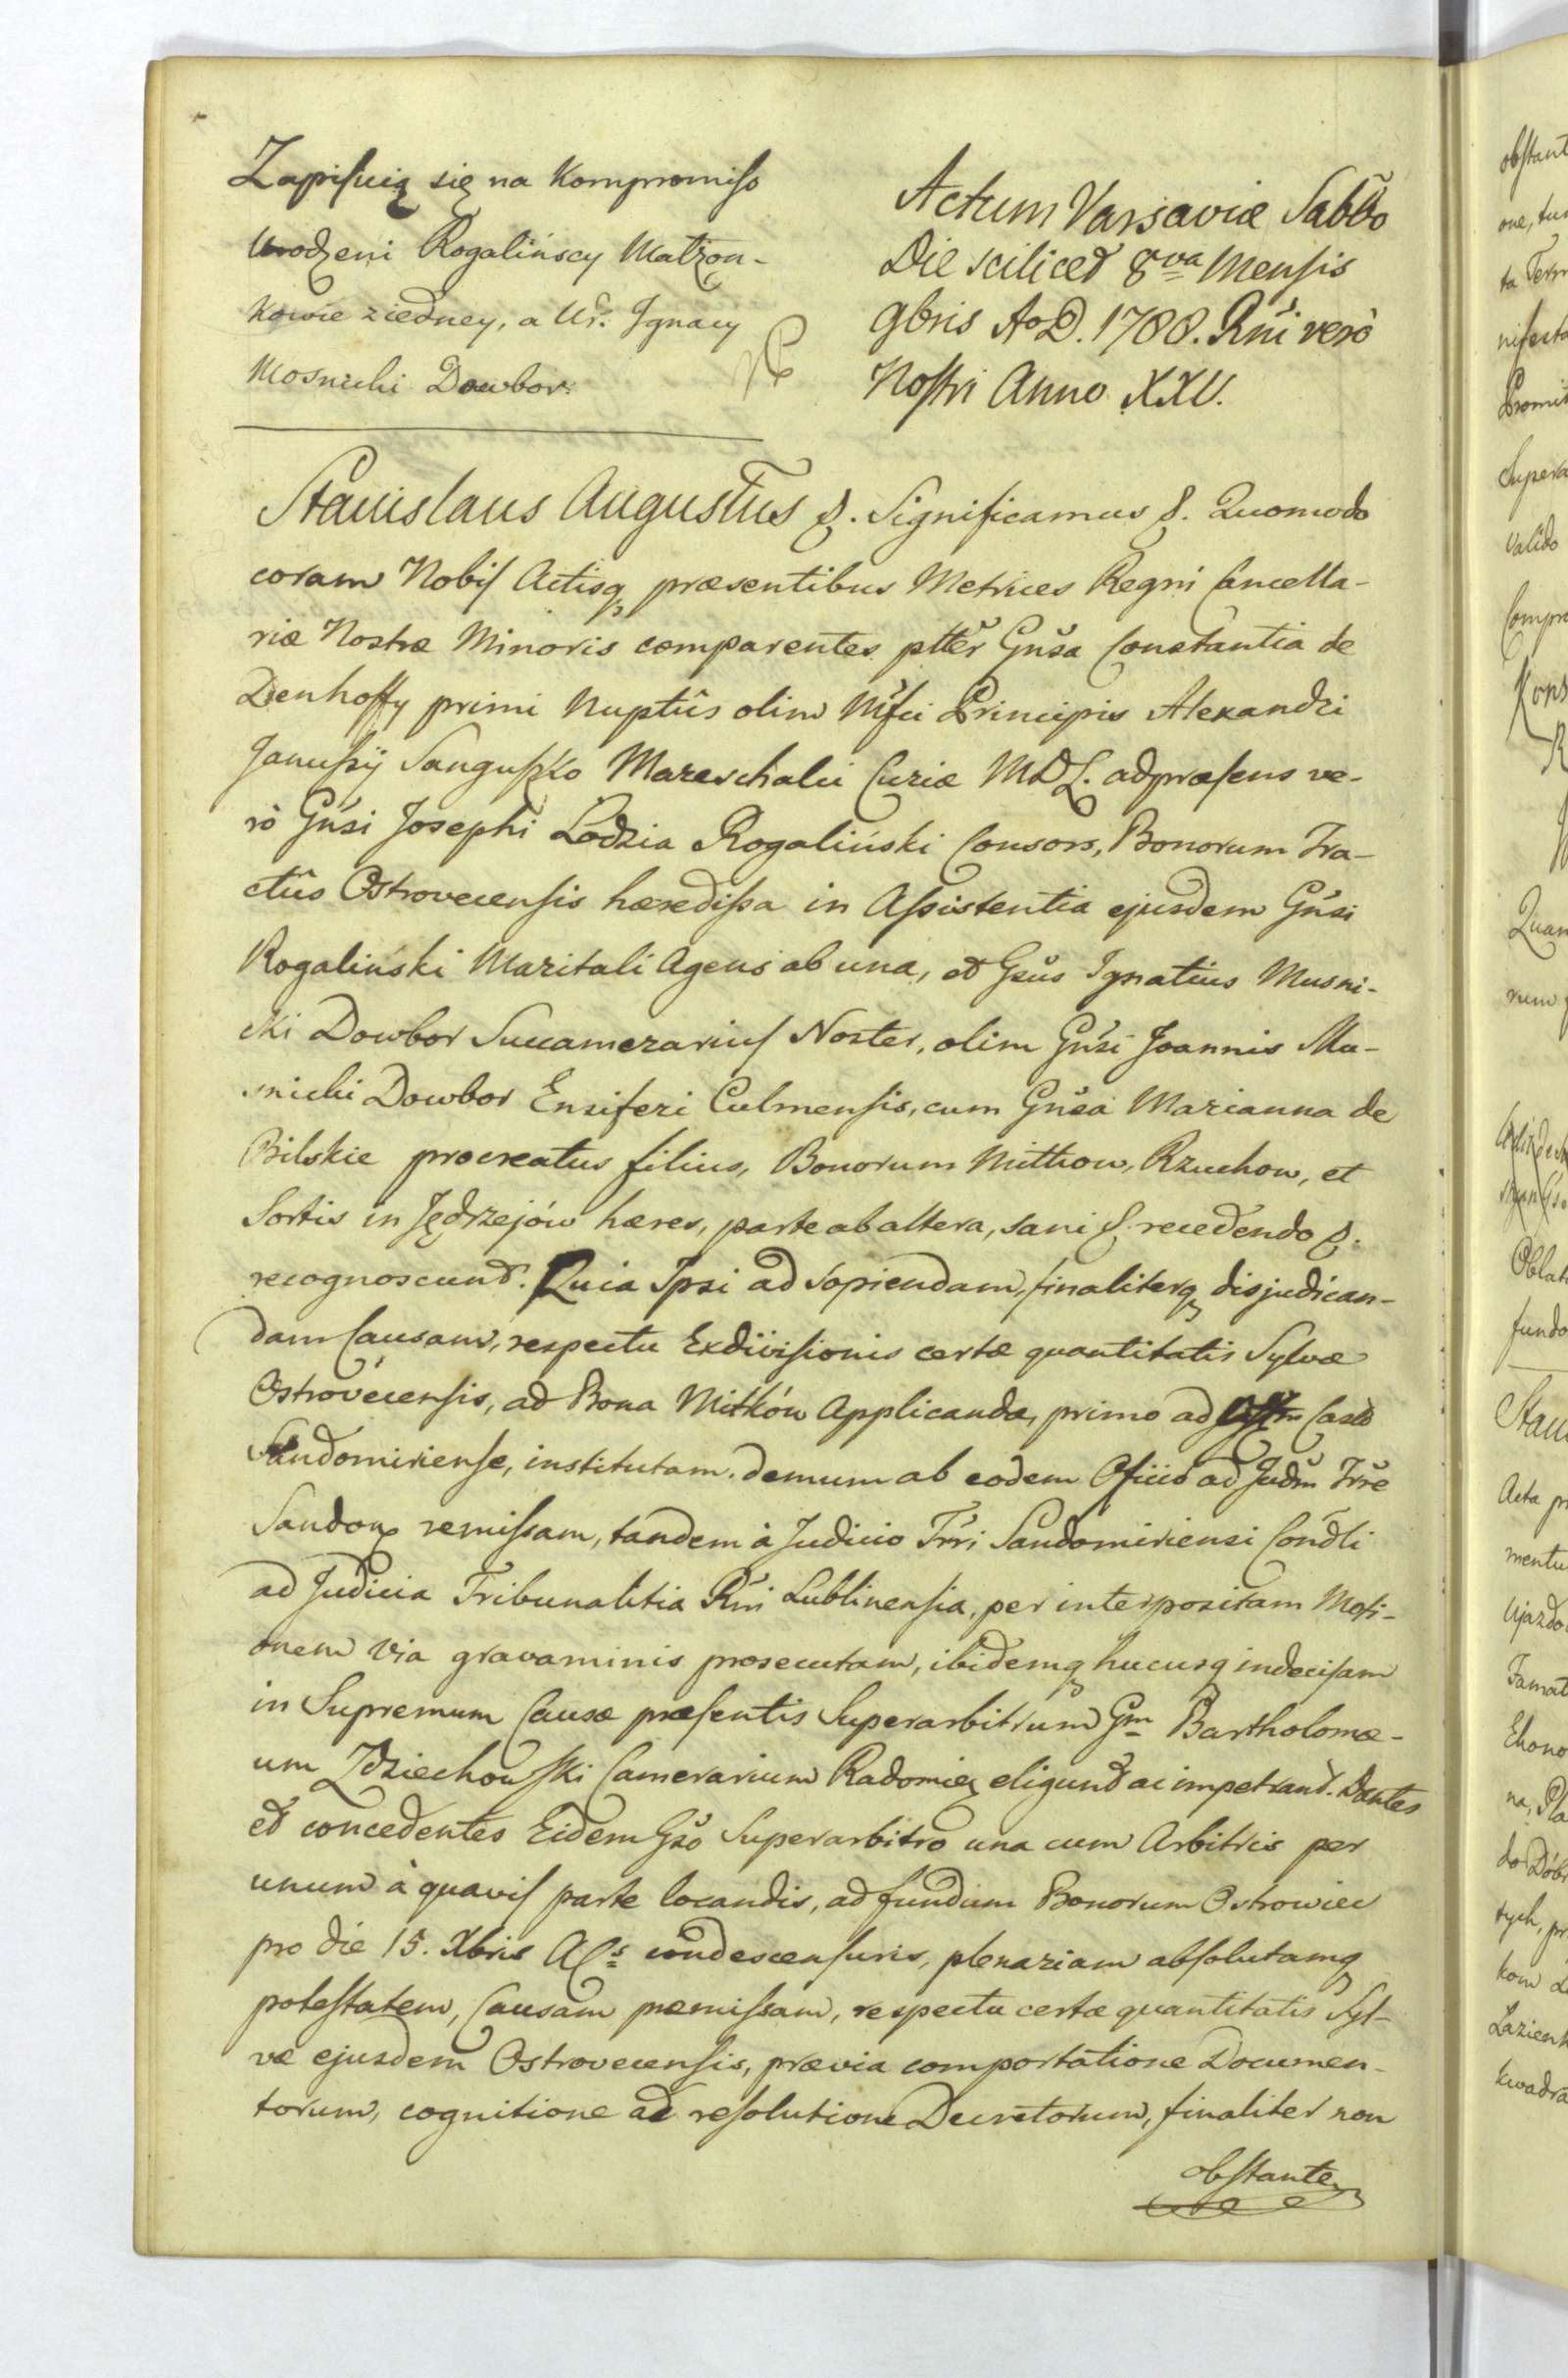 Zapisuią się na Kompromiss
Urodzeni Rogalińscy Małżon-
kowie ziedney, a Ur. Ignacy
Mosnicki Dowbor.
Actum Varsaviæ Sabbo
Die scilicet 8va Mensis
9bris A.D. 1788. Rni verò
Nostri Anno XXV.
Stanislaus Augustus &. Significamus &. Quomodo
coram Nobis Actisq præsentibus Metrices Regni Cancella-
riæ Nostræ Minoris comparentes pltter Gnsa Constantia de
Denhoffy primi Nuptûs olim Mfci Principis Alexandri
Janussij Sanguszko Mareschalci Curiæ MDL. adpræsens ve-
rò Gnsi Josephi Lodzia Rogaliński Consors, Bonorum Tra-
ctûs Ostrovecensis hæredissa in Assistentia ejusdem Gnsi
Rogaliński Maritali Agens ab una, et Gsus Ignatius Musni-
cki Dowbor Succamerarius Noster, olim Gnsi Joannis Mu-
snicki Dowbor Ensiferi Culmensis, cum Gnsa Marianna de
Bilskie procreatus filius, Bonorum Mitkow, Rzuchow, et
Sortis in Jędrzejów hæres, parte ab altera, sani &. recedendo &.
recognoscunt. Quia Ipsi ad sopiendam, finaliterq disjudican-
dam Causam, respectu Exdivisionis certæ quantitatis Sylvæ
Ostrovecensis, ad Bona Mitków Applicandæ, primo ad Castr
Sandomiriense, institutam. demum ab eodem Officio ad Judm Trre
Sandom remissam, tandem à Judicio Trri Sandomiriensi Condli
ad Judicia Tribunalitia Rni Lublinensia, per interpositam Moti-
onem via gravaminis prosecutam, ibidemq hucusq indecisam
in Supremum Causæ præsentis Superarbitrum Gm Bartholomæ-
um Zdziechowski Camerarium Radomien eligunt ac impetrant. Dantes
et concedentes Eidem Gso Superarbitro una cum Arbitris per
unum à quavis parte locandis, ad fundum Bonorum Ostrowiec
pro die 15. Xbris ACs condescensuris, plenariam absolutamq
potestatem, Causam præmissam, respectu certæ quantitatis Syl-
væ ejusdem Ostrovecensis, prævia comportatione Documen-
torum, cognitione ac resolutione Decretorum, finaliter non
obstante